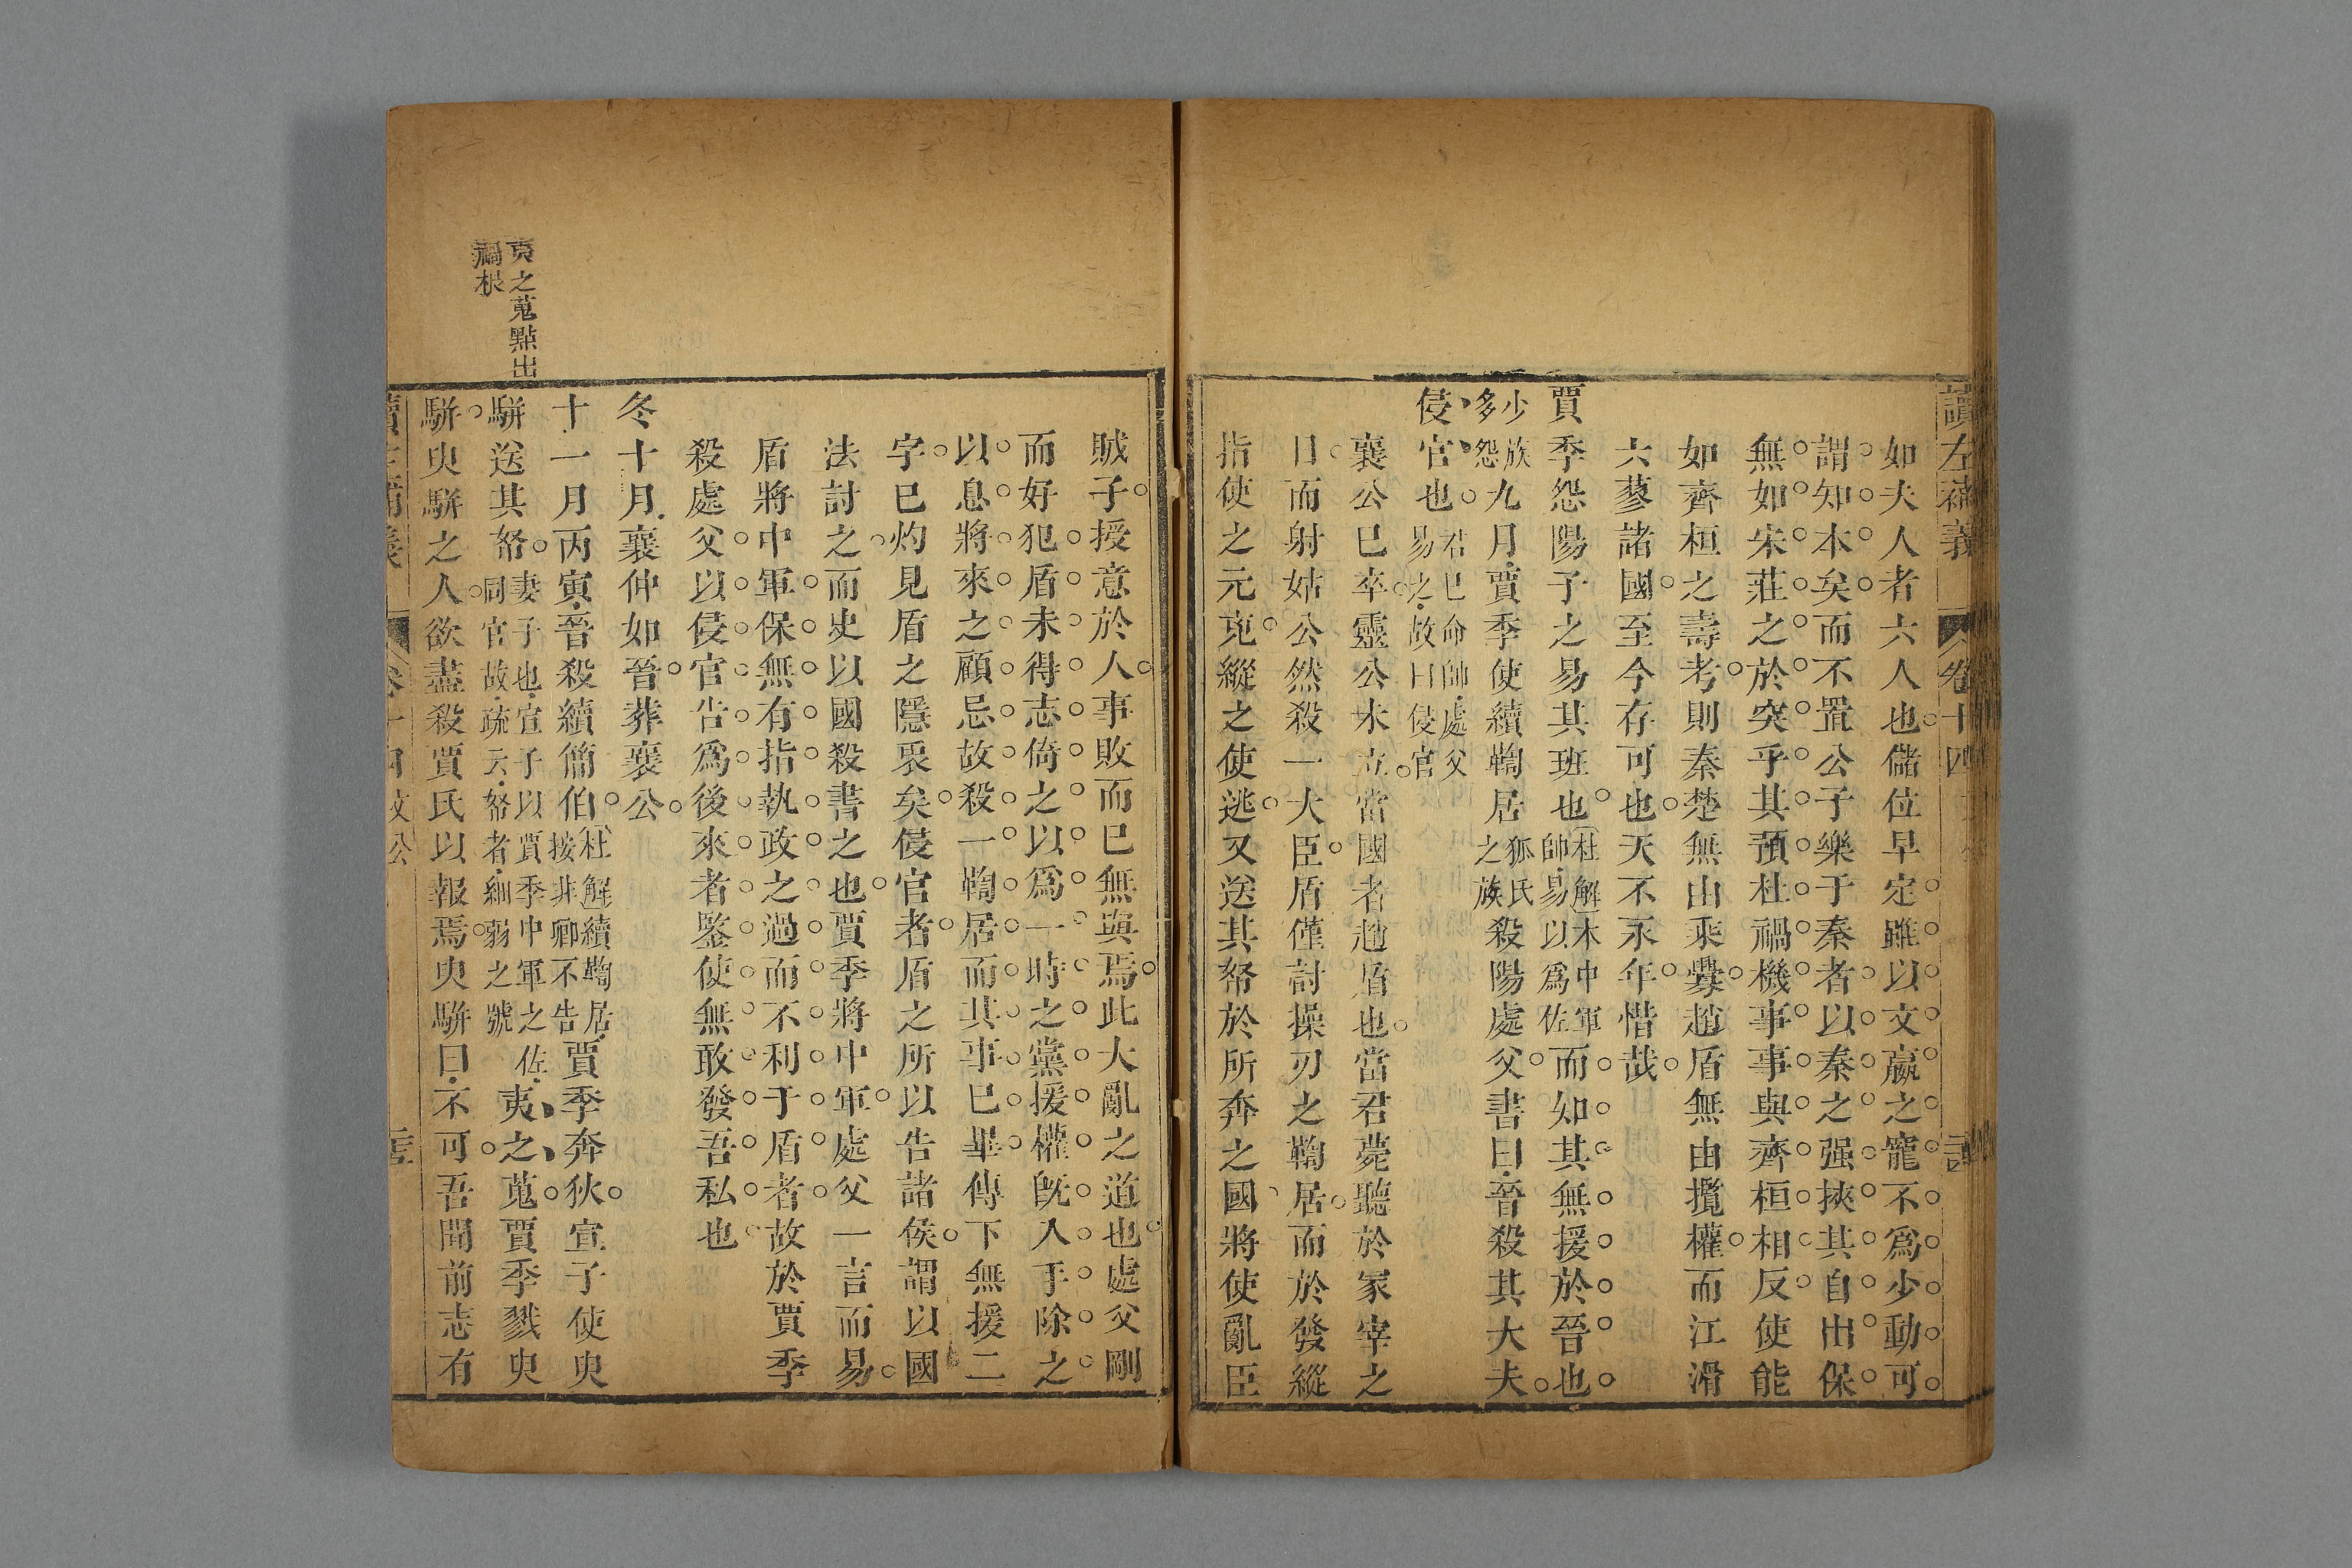 讀左補義 卷十四
如夫人者六人也儲位早定雖以文嬴之寵不爲少動可
謂知本矣而不置公子樂于秦者以秦之强挾其自出保
無如宋莊之於突乎其預杜禍機事事與齊桓相反使能
如齊桓之壽考則秦楚無由乘釁趙盾無由攬權而江滑
六蓼諸國至今存可也天不永年惜哉
賈季怨陽子之易其班也杜解本中軍帥易以爲佐而如其無援於晉也
少族多怨九月賈季使續鞫居狐氏之族殺陽處父書曰晉殺其大夫
侵官也君已命帥處父易之故曰侵官
襄公巳卒靈公未立當國者趙盾也當君薨聽於冢宰之
日而射姑公然殺一大臣盾僅討操刃之鞫居而於發縱
指使之元兇縱之使逃又送其帑於所奔之國將使亂臣
賊子授意於人事敗而巳無與焉此大亂之道也處父剛
而好犯盾未得志倚之以爲一時之黨援權旣入手除之
以息將來之顧忌故殺一鞫居而其事巳畢傳下無援二
字巳灼見盾之隱衷矣侵官者盾之所以告諸侯謂以國
法討之而史以國殺書之也賈季將中軍處父一言而易
盾將中軍保無有指執政之過而不利于盾者故於賈季
殺處父以侵官告爲後來者鑒使無敢發吾私也
冬十月襄仲如晉葬襄公
十一月丙寅晉殺續簡伯杜解續鞫居按非卿不告賈季奔狄宣子使臾
駢送其帑妻子也宣子以賈季中軍之佐同官故疏云帑者細弱之號夷之蒐賈季戮臾
駢臾駢之人欲盡殺賈氏以報焉臾駢曰不可吾聞前志有
夷之蒐點出
禍根